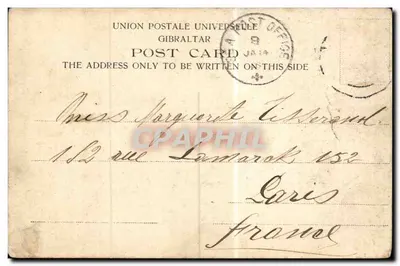 UNION POSTALE UNIVERSELLE
GIBRALTAR
POST CARD
THE ADDRESS ONLY TO BE WRITTEN ON THIS SIDE
SEA POST OFFICE
8
JA 14
Miss Marguerite Tisserand
152 rue Lamarck 152
Paris
France
CPARAMA